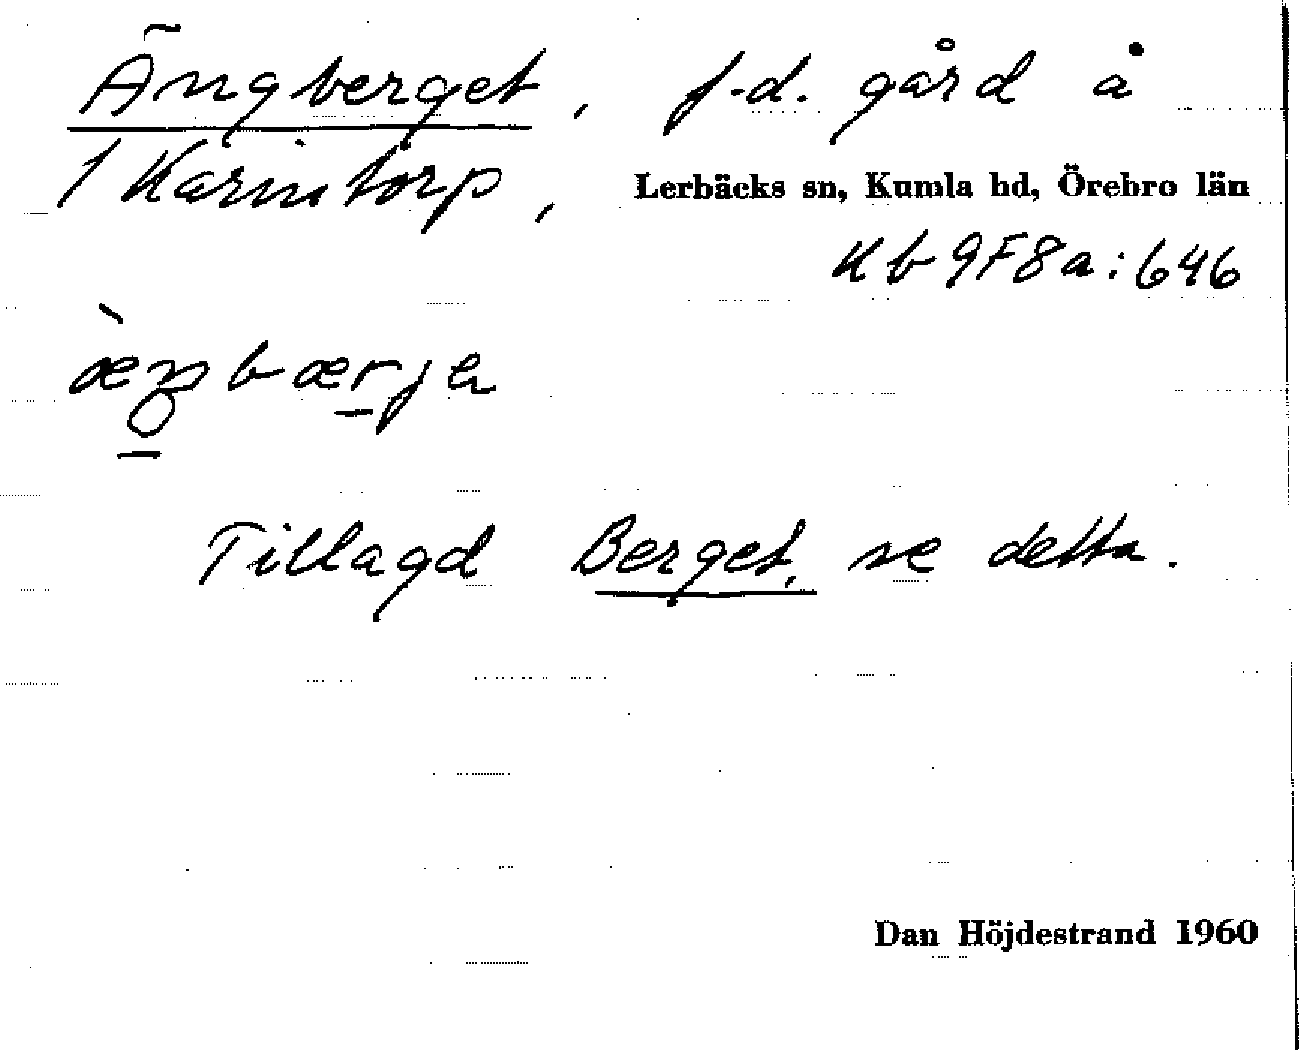 Ängberget, f.d. gård å
1 Karintorp,
Lerbäcks sn, Kumla hd, Örebro län
Kb 9F8a:646
æ̀ŋbærja
Tillagd Berget, se detta.
Dan Höjdestrand 1960